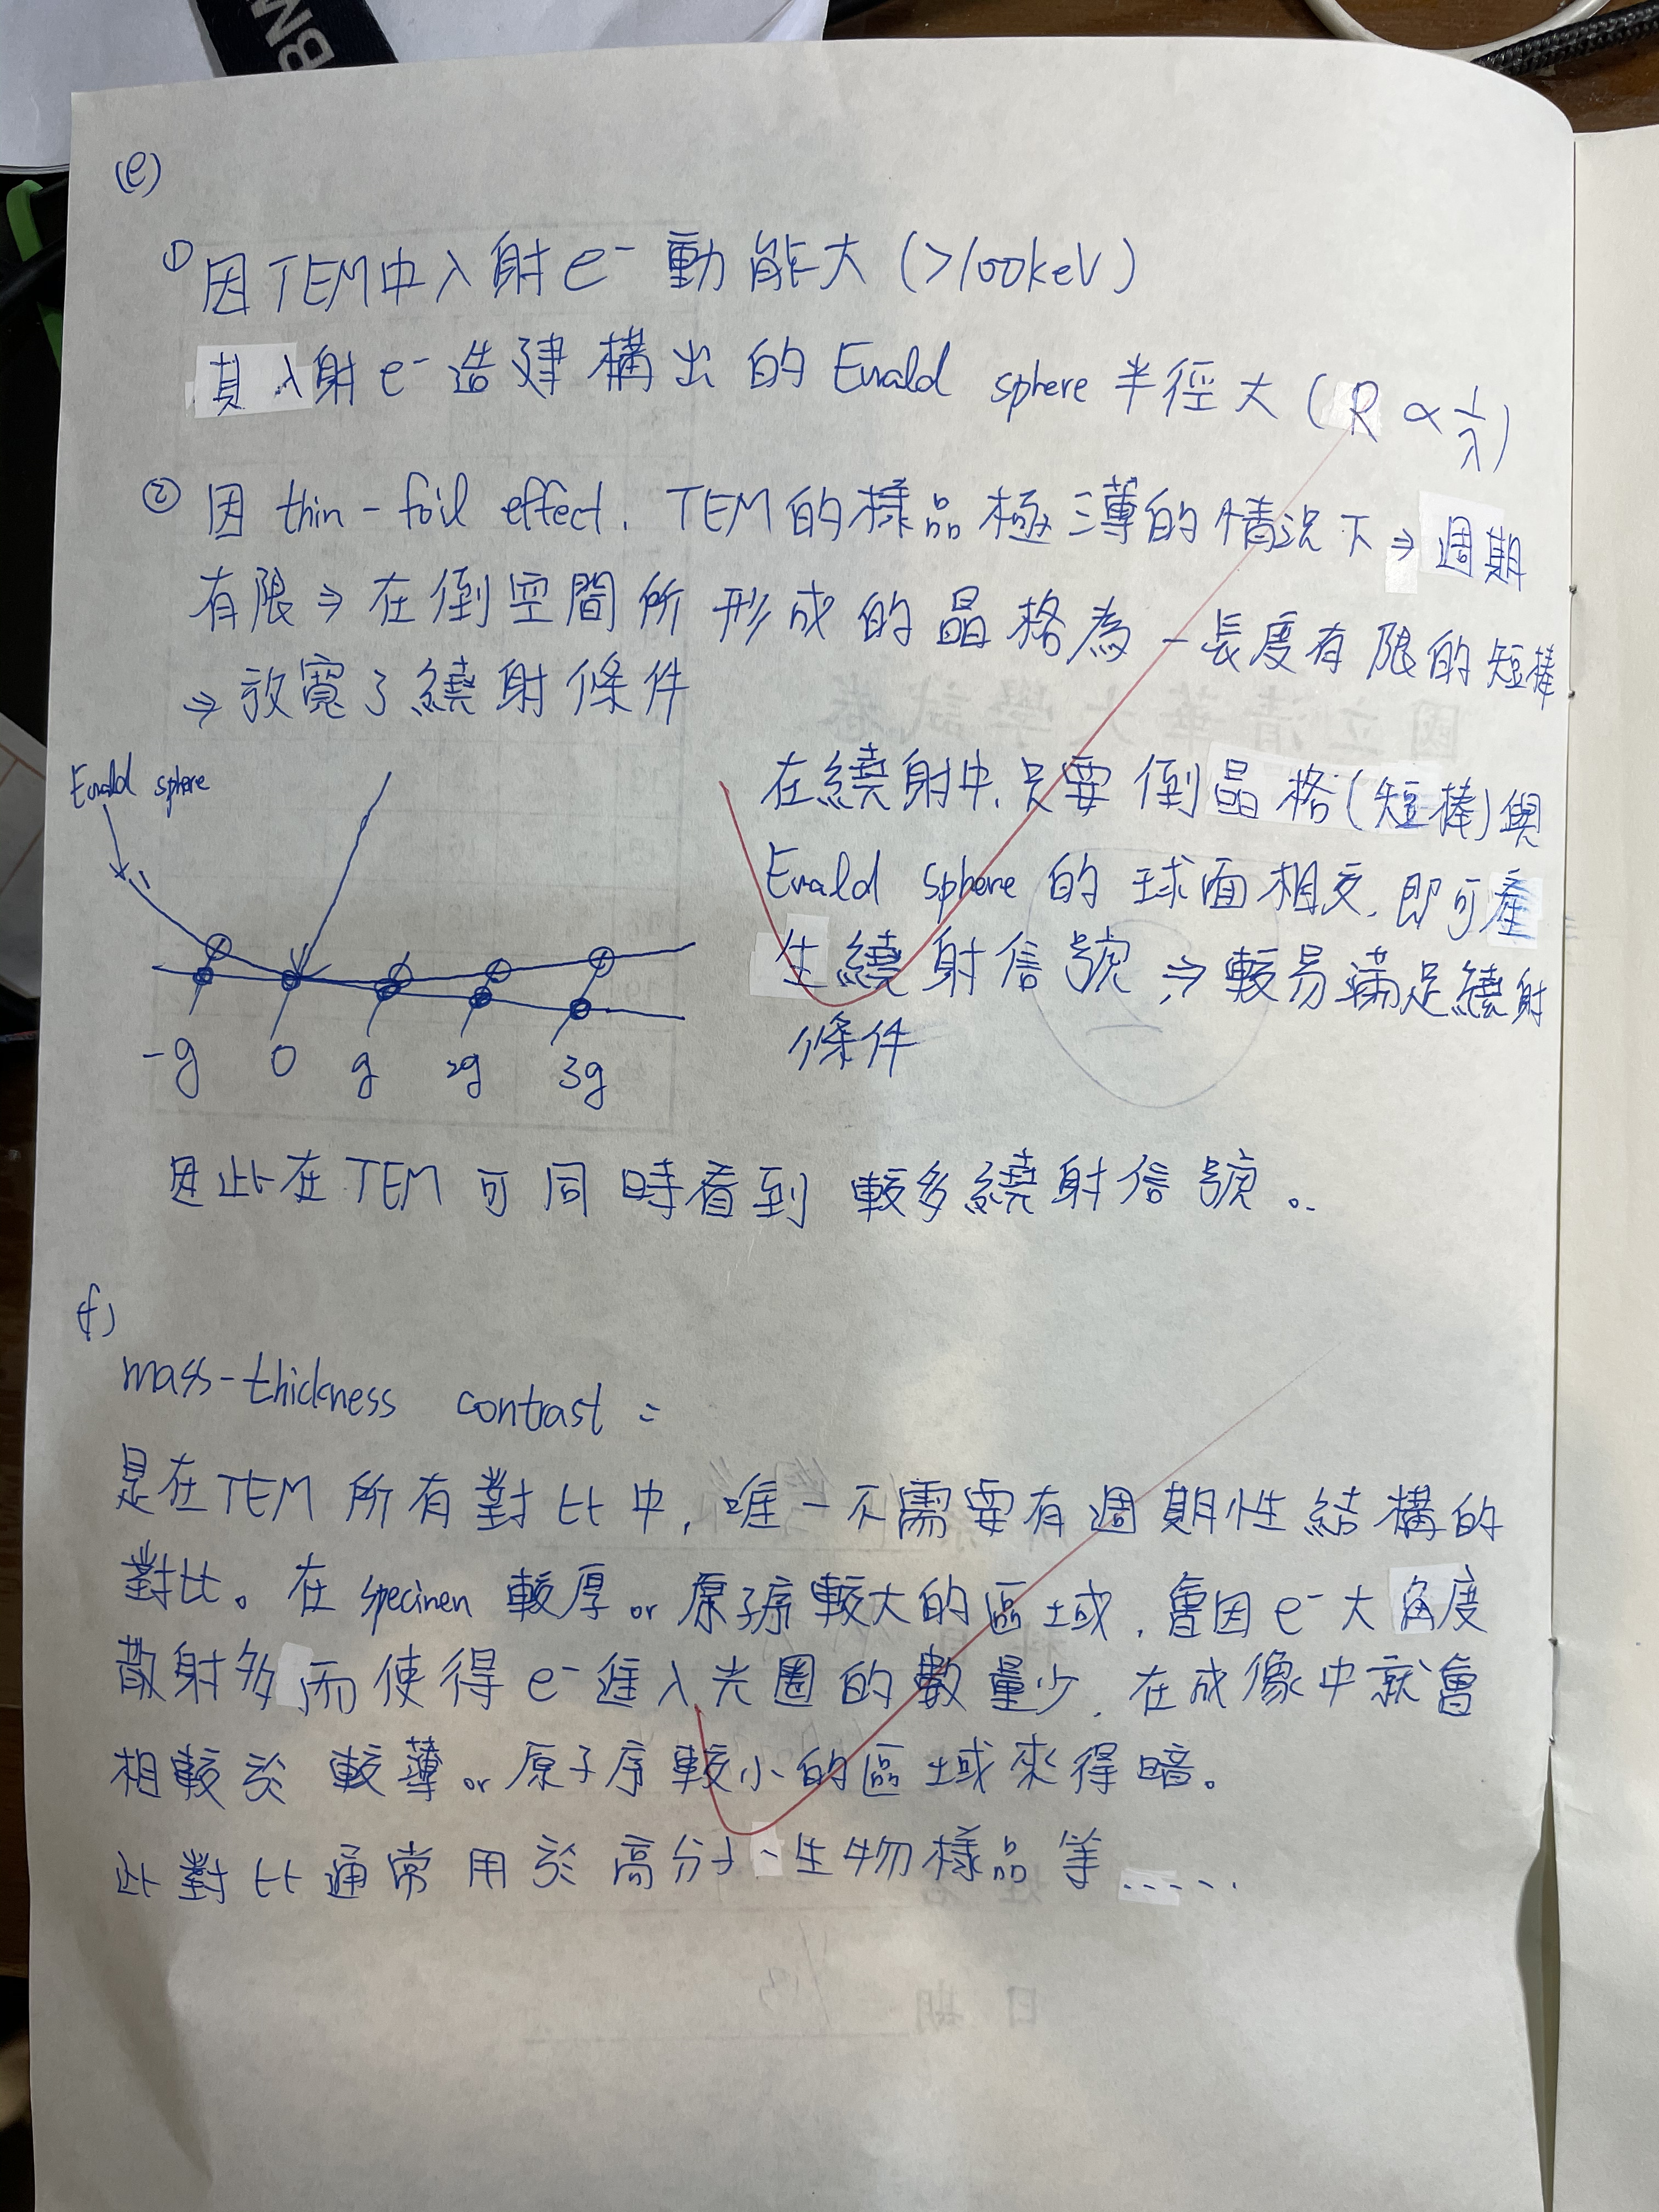 BM
(e)
① 因TEM中入射e⁻動能大(>100keV)
其入射e⁻造建構出的 Ewald sphere半徑大(R ∝ 1/λ)
② 因 thin-foil effect. TEM的樣品極薄的情況下⇒週期
有限⇒在倒空間所形成的晶格為一長度有限的短棒
⇒放寬了繞射條件
Ewald sphere
在繞射中.只要倒晶格(短棒)與
Ewald sphere的球面相交.即可產
生繞射信號⇒較易滿足繞射
條件
-g 0 g 2g 3g
因此在TEM可同時看到較多繞射信號。
(f)
mass-thickness contrast =
是在TEM所有對比中,唯一不需要有週期性結構的
對比。在specimen較厚or原子序較大的區域.會因e⁻大角度
散射多而使得e⁻進入光圈的數量少.在成像中就會
相較於較薄or原子序較小的區域來得暗。
此對比通常用於高分子、生物樣品等......
國立清華大學試卷
日期